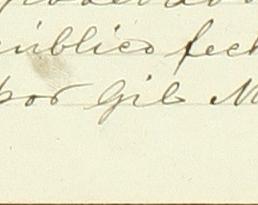 público fech
por Gil M